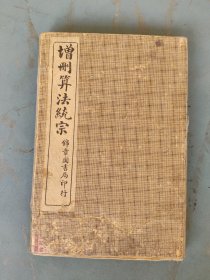 增刪算法統宗
錦章圖書局印行